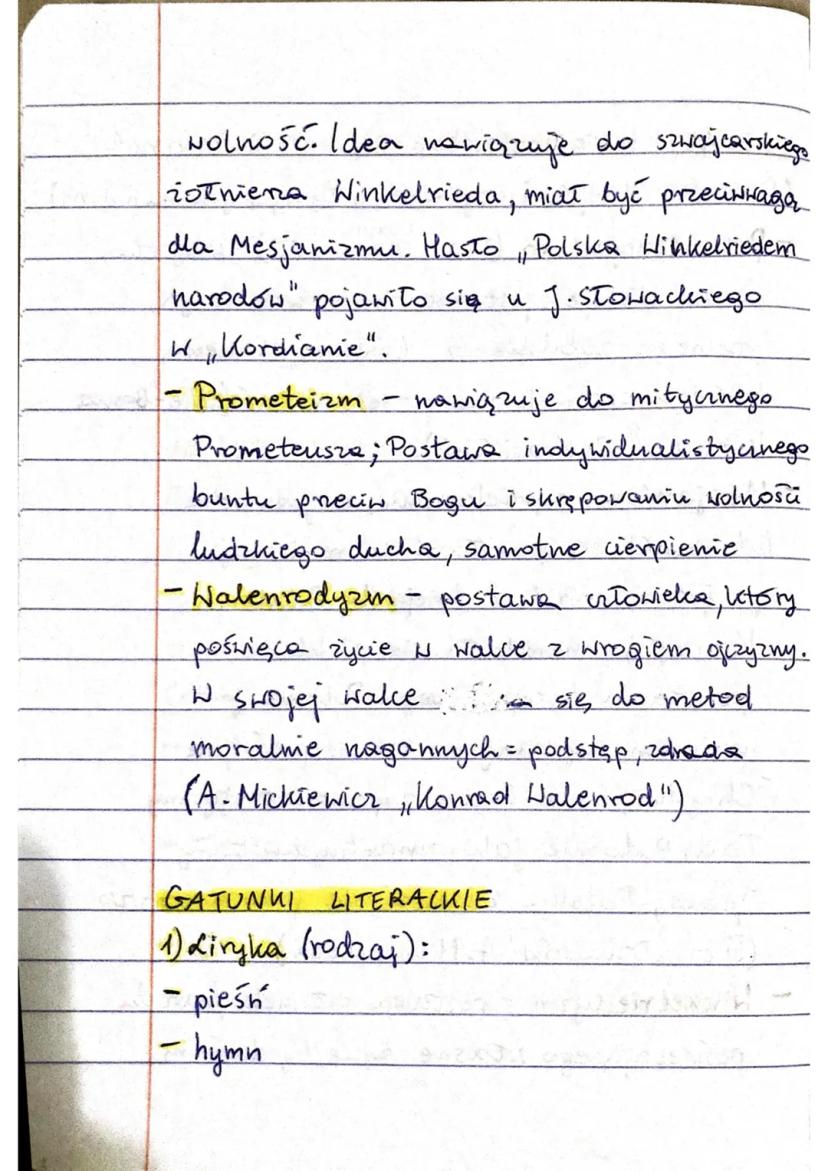 wolność. Idea nawiązuje do szwajcarskiego
żołnierza Winkelrieda, miał być przeciwwagą
dla Mesjanizmu. Hasło „Polska Winkelriedem
narodów" pojawiło się u J. Słowackiego
w „Kordianie".
- Prometeizm - nawiązuje do mitycznego
Prometeusza; Postawa indywidualistycznego
buntu przeciw Bogu i skrępowaniu wolności
ludzkiego ducha, samotne cierpienie
- Walenrodyzm - postawa człowieka, który
poświęca życie w walce z wrogiem ojczyzny.
W swojej walce się do metod
moralnie nagannych = podstęp, zdrada
(A. Mickiewicz „Konrad Walenrod")
GATUNKI LITERACKIE
1) Liryka (rodzaj):
- pieśń
- hymn